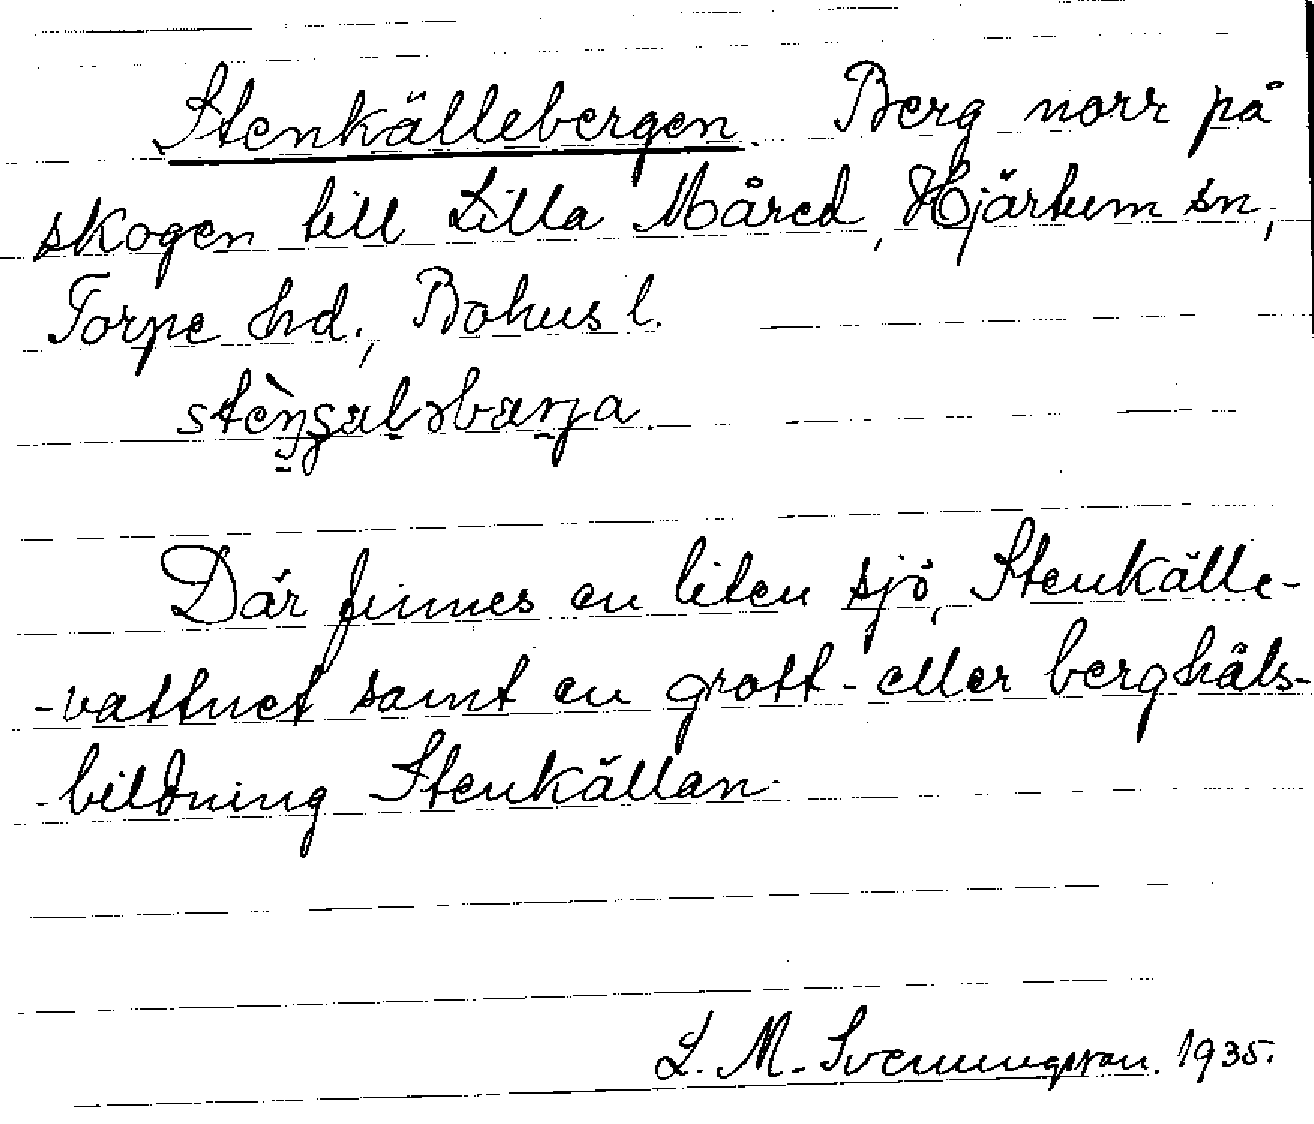 Stenkällebergen. Berg norr på
skogen till Lilla Måred, Hjärtum sn,
Torpe hd., Bohus l.
Där finnes en liten sjö, Stenkälle-
-vattnet samt en grott- eller berghåls-
-bildning Stenkällan.
L. M. Svenungsson. 1935.